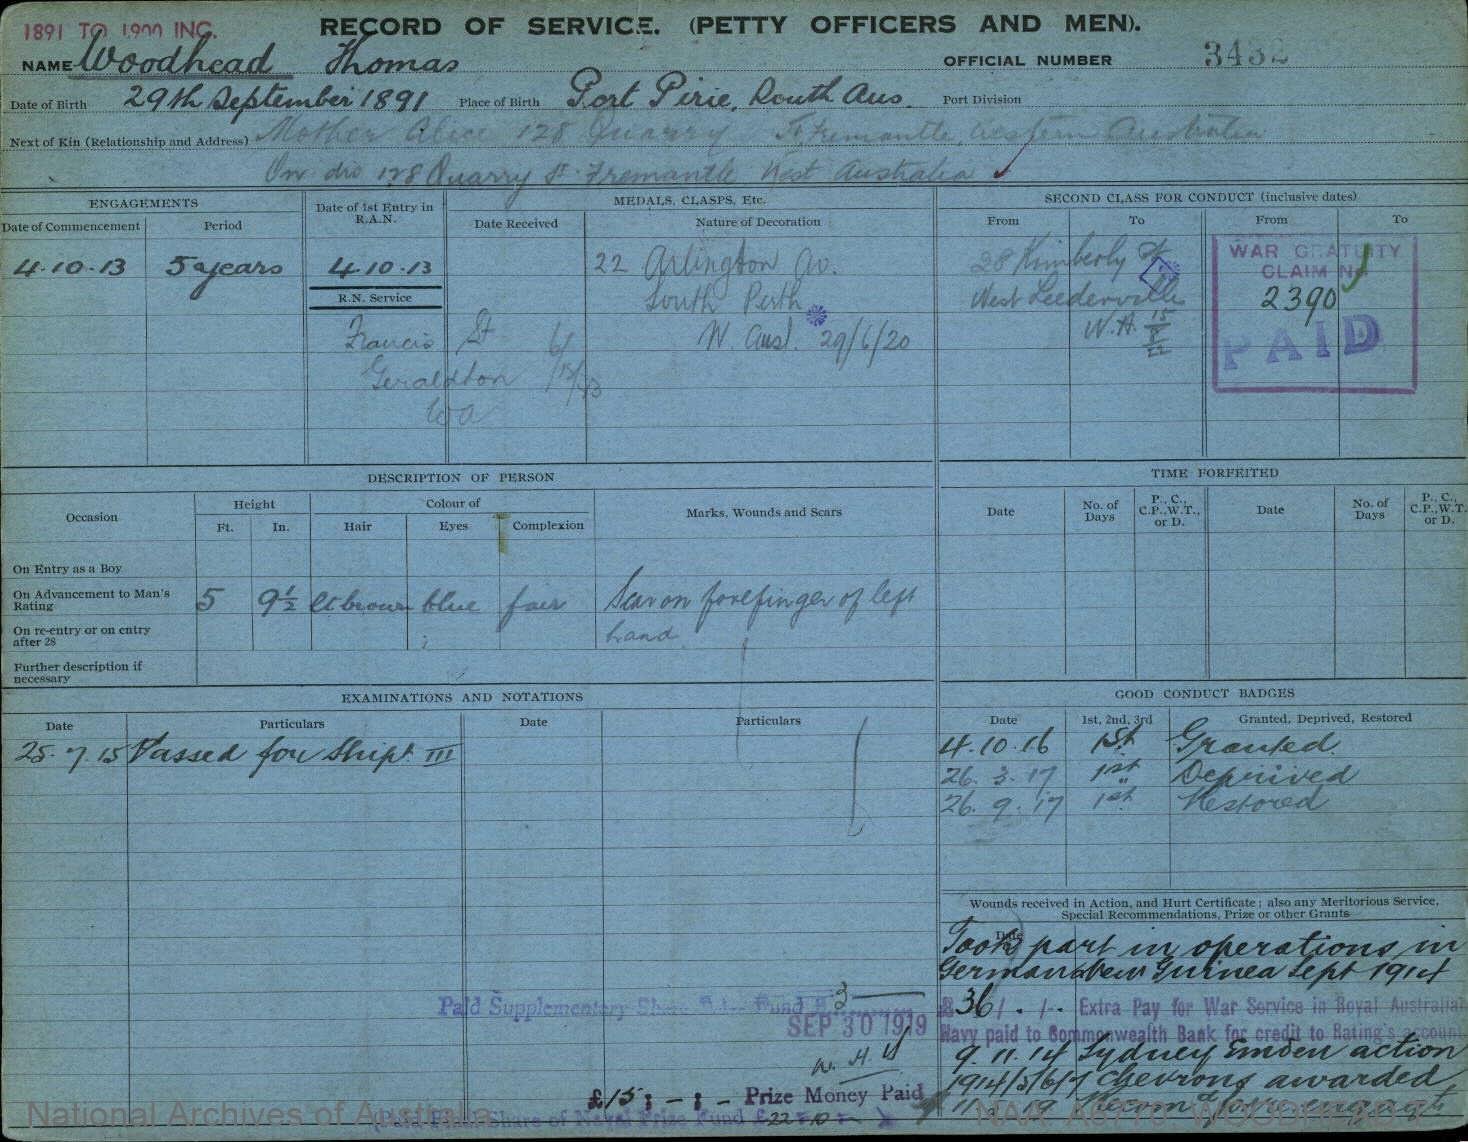 1891 TO 1900 INC.
RECORD OF SERVICE. (PETTY OFFICERS AND MEN).
NAME Woodhead Thomas
OFFICIAL NUMBER 3432
Date of Birth 29th September 1891 Place of Birth Port Pirie, South Aus. Port Division
Next of Kin (Relationship and Address) Mother Alice 128 Quarry St Fremantle, Western Australia
128 Quarry St Fremantle West Australia
ENGAGEMENTS
Date of Commencement Period
4.10.13 5 years
Date of 1st Entry in R.A.N.
4.10.13
R.N. Service
Francis St
Geraldton
WA
MEDALS, CLASPS, Etc.
Date Received Nature of Decoration
22 Arlington Av.
South Perth
W. Aust. 29/6/20
SECOND CLASS FOR CONDUCT (inclusive dates)
From To From To
28 Kimberly St
West Leederville
W.A. 15/8/22
WAR GRATUITY
CLAIM No
2390
PAID
DESCRIPTION OF PERSON
Occasion Height Colour of Marks, Wounds and Scars
Ft. In. Hair Eyes Complexion
On Entry as a Boy
On Advancement to Man's Rating 5 9½ lt brown blue fair Scar on forefinger of left hand
On re-entry or on entry after 28
Further description if necessary
TIME FORFEITED
Date No. of Days P., C., C.P.,W.T., or D. Date No. of Days P., C., C.P.,W.T. or D.
EXAMINATIONS AND NOTATIONS
Date Particulars Date Particulars
25.7.15 Passed for Ship's III
GOOD CONDUCT BADGES
Date 1st, 2nd, 3rd Granted, Deprived, Restored
4.10.16 1st Granted.
26.3.17 1st Deprived
26.9.17 1st Restored
Wounds received in Action, and Hurt Certificate; also any Meritorious Service,
Special Recommendations, Prize or other Grants
Date
Took part in operations in
German New Guinea Sept 1914
£36/./.. Extra Pay for War Service in Royal Australian
Navy paid to Commonwealth Bank for credit to Rating's account
9.11.14 Sydney Emden action
1914/5/6/7 chevrons awarded,
Paid Supplementary Share Prize Fund £3
SEP 30 1919
£15 : - : - Prize Money Paid
Share of Naval Prize Fund £22.10
National Archives of Australia